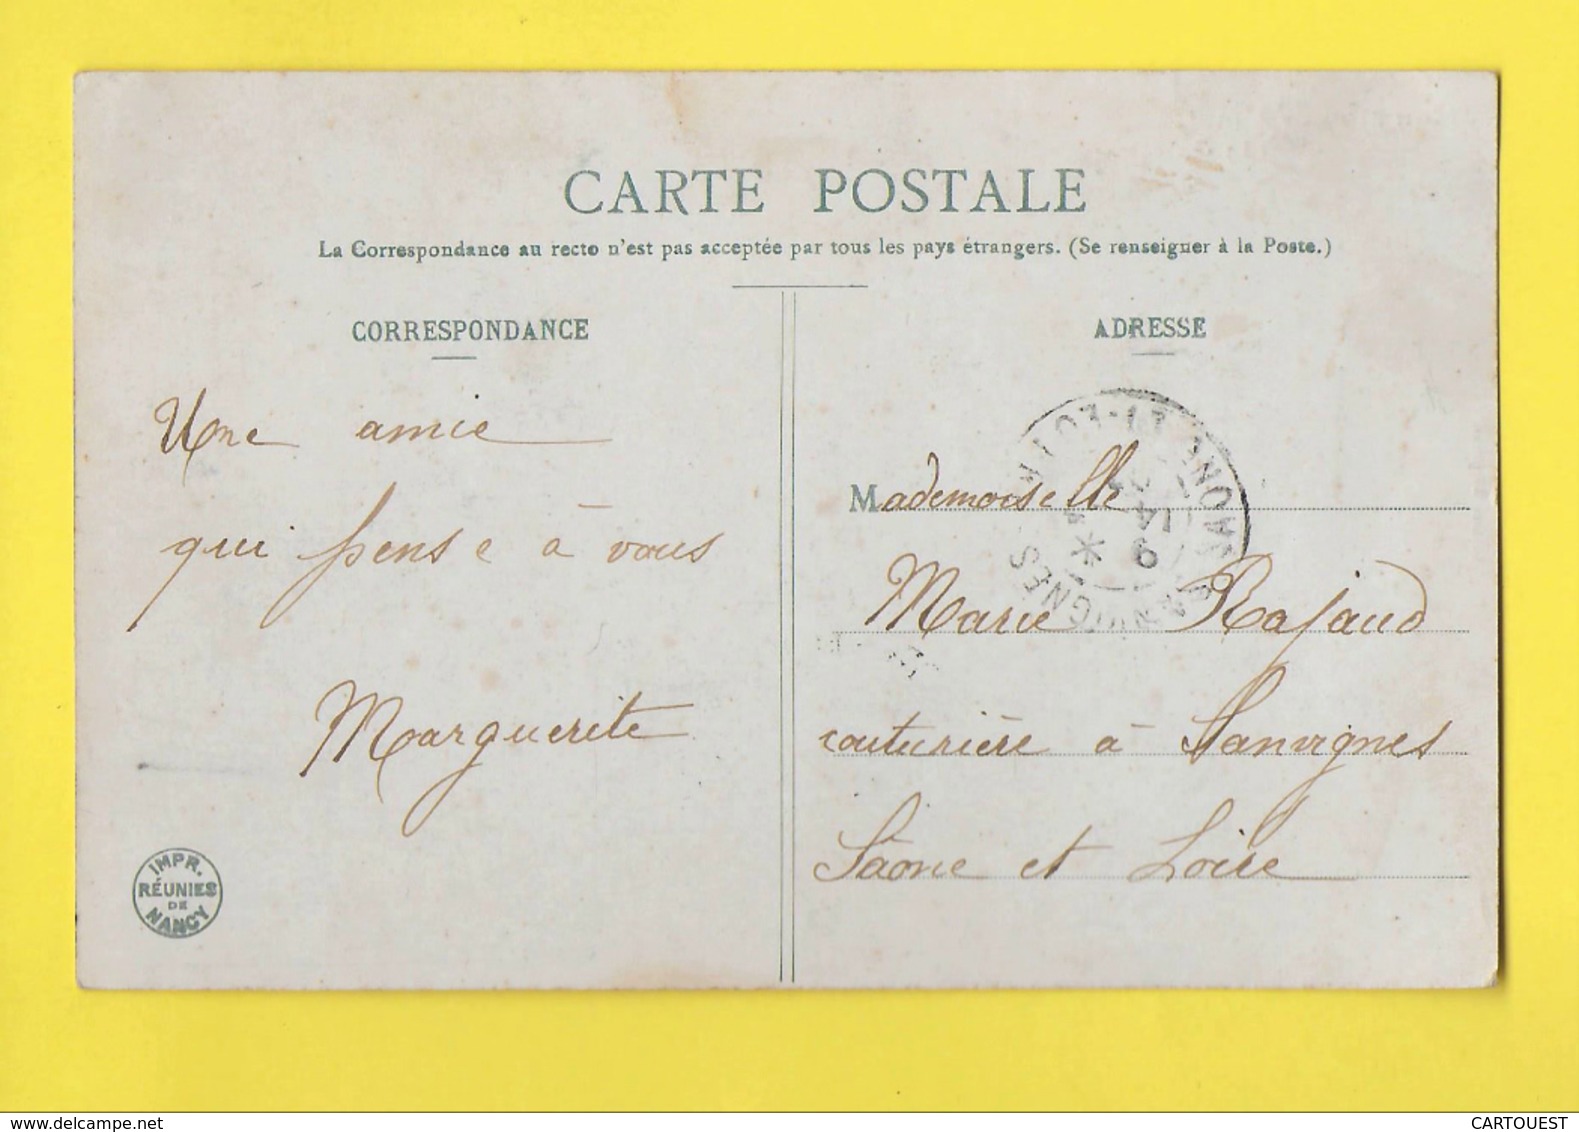 CARTE POSTALE
La Correspondance au recto n'est pas acceptée par tous les pays étrangers. (Se renseigner à la Poste.)
CORRESPONDANCE
Une amie
qui pense à vous
Marguerite
IMPR.
RÉUNIES
DE
NANCY
ADRESSE
Mademoiselle
Marie Rajaud
couturière à Sanvignes
Saone et Loire
delcampe.net
CARTOUEST